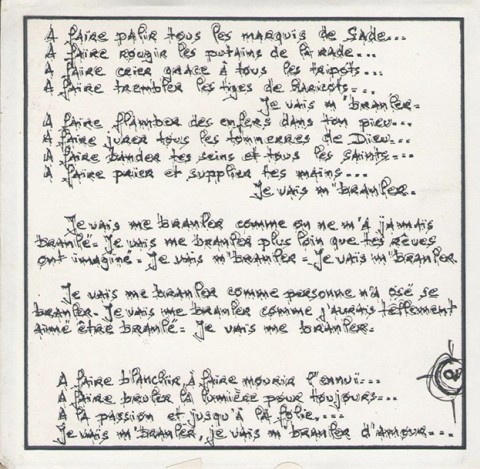 A faire pâlir tous les marquis de Sade...
A faire rougir les putains de la rade...
A faire crier grâce à tous les tripots...
A faire trembler les tiges de haricots...
Je vais m'branler.
A faire flamber des enfers dans ton pieu...
A faire jurer tous les tonnerres de Dieu...
A faire bander tes seins et tous les saints...
A faire prier et supplier tes mains...
Je vais m'branler.
Je vais me branler comme on ne m'a jamais
branlé. Je vais me branler plus loin que tes rêves
ont imaginé. Je vais m'branler. Je vais m'branler.
Je vais me branler comme personne n'a osé se
branler. Je vais me branler comme j'aurais tellement
aimé être branlé. Je vais me branler.
A faire blanchir, à faire mourir l'ennui...
A faire bruler la lumière pour toujours...
A la passion et jusqu'à la folie....
Je vais m'branler, je vais m'branler d'amour...